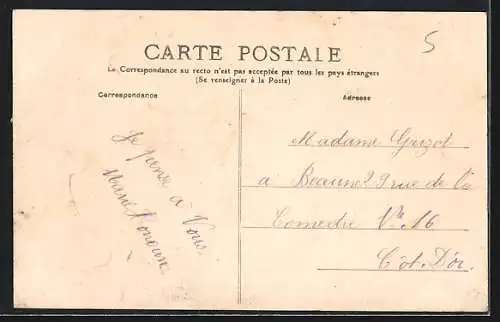 CARTE POSTALE
5
La Correspondance au recto n'est pas acceptée par tous les pays étrangers
(Se renseigner à la Poste)
Correspondance
Adresse
Je pense à Vous.
Marie
Madame
a Beaune 29 rue de la
Comedie No 16
Côt. D'or.